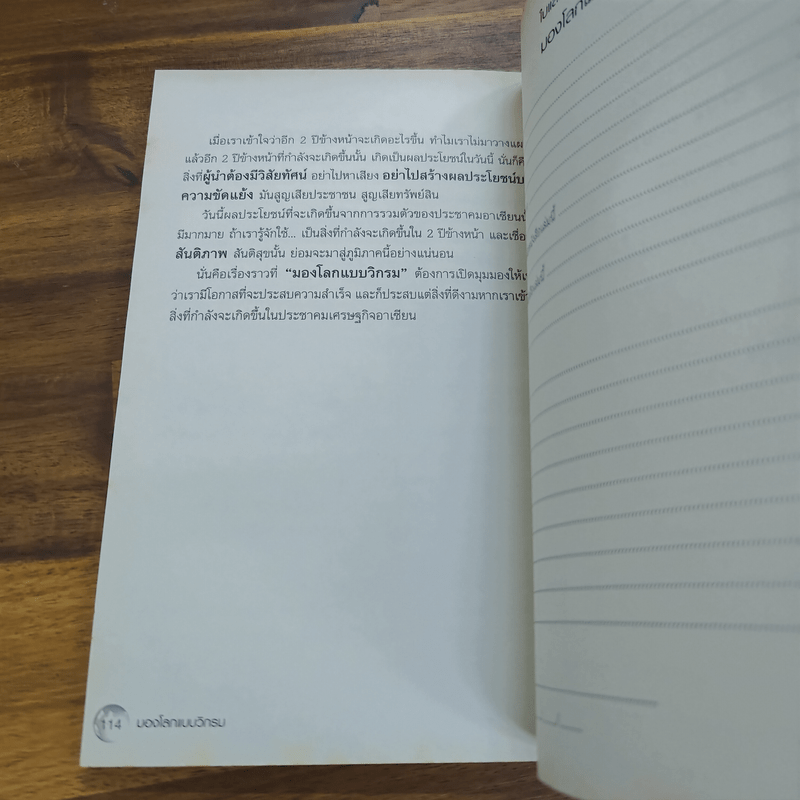 เมื่อเราเข้าใจว่าอีก 2 ปีข้างหน้าจะเกิดอะไรขึ้น ทำไมเราไม่มาวางแผ
แล้วอีก 2 ปีข้างหน้าที่กำลังจะเกิดขึ้นนั้น เกิดเป็นผลประโยชน์ในวันนี้ นั่นก็คื
สิ่งที่ผู้นำต้องมีวิสัยทัศน์ อย่าไปหาเสียง อย่าไปสร้างผลประโยชน์บ
ความขัดแย้ง มันสูญเสียประชาชน สูญเสียทรัพย์สิน
วันนี้ผลประโยชน์ที่จะเกิดขึ้นจากการรวมตัวของประชาคมอาเซียนนั
มีมากมาย ถ้าเรารู้จักใช้... เป็นสิ่งที่กำลังจะเกิดขึ้นใน 2 ปีข้างหน้า และเชื่อ
สันติภาพ สันติสุขนั้น ย่อมจะมาสู่ภูมิภาคนี้อย่างแน่นอน
นั่นคือเรื่องราวที่ “มองโลกแบบวิกรม” ต้องการเปิดมุมมองให้เ
ว่าเรามีโอกาสที่จะประสบความสำเร็จ และก็ประสบแต่สิ่งที่ดีงามหากเราเข้
สิ่งที่กำลังจะเกิดขึ้นในประชาคมเศรษฐกิจอาเซียน
114 มองโลกแบบวิกรม
มองโลก